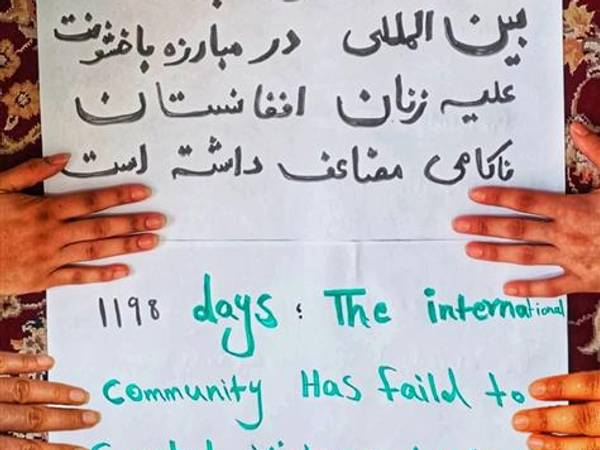 بین المللی در مبارزه با خشونت
علیه زنان افغانستان
ناکامی مضاعف داشته است
1198 days : The international
community Has faild to